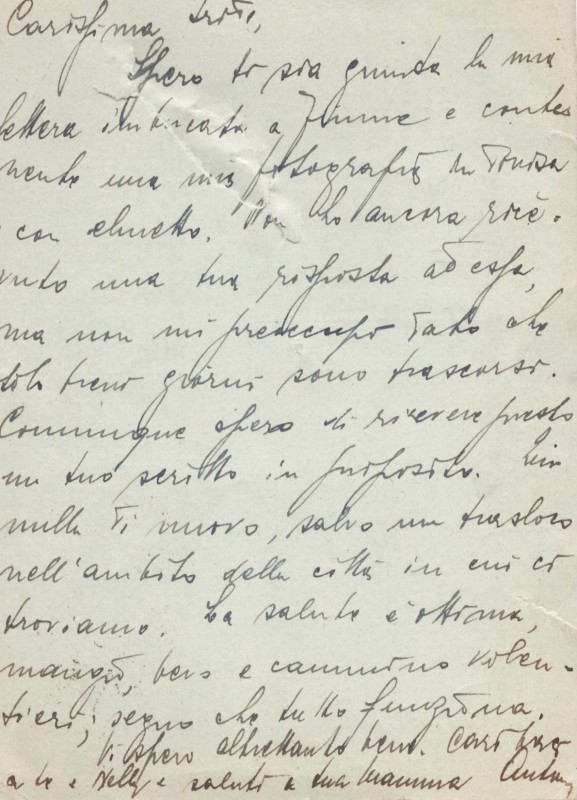 Carissima
Spero ti sia giunta la mia
lettera imbucata a Fiume e conte
nente una mia fotografia in divisa
con elmetto. Non ho ancora rice-
vuto una tua risposta ad essa,
ma non mi preoccupo dato che
giorni sono trascorsi.
Comunque spero di ricevere presto
un tuo scritto in proposito. Qui
nulla di nuovo, salvo un trasloco
nell'ambito della città in cui ci
troviamo. La salute è ottima,
mangio, bevo e cammino volen-
tieri; segno che tutto funziona.
Ti spero altrettanto bene. Cari
a te e Nelly e saluti a tua mamma